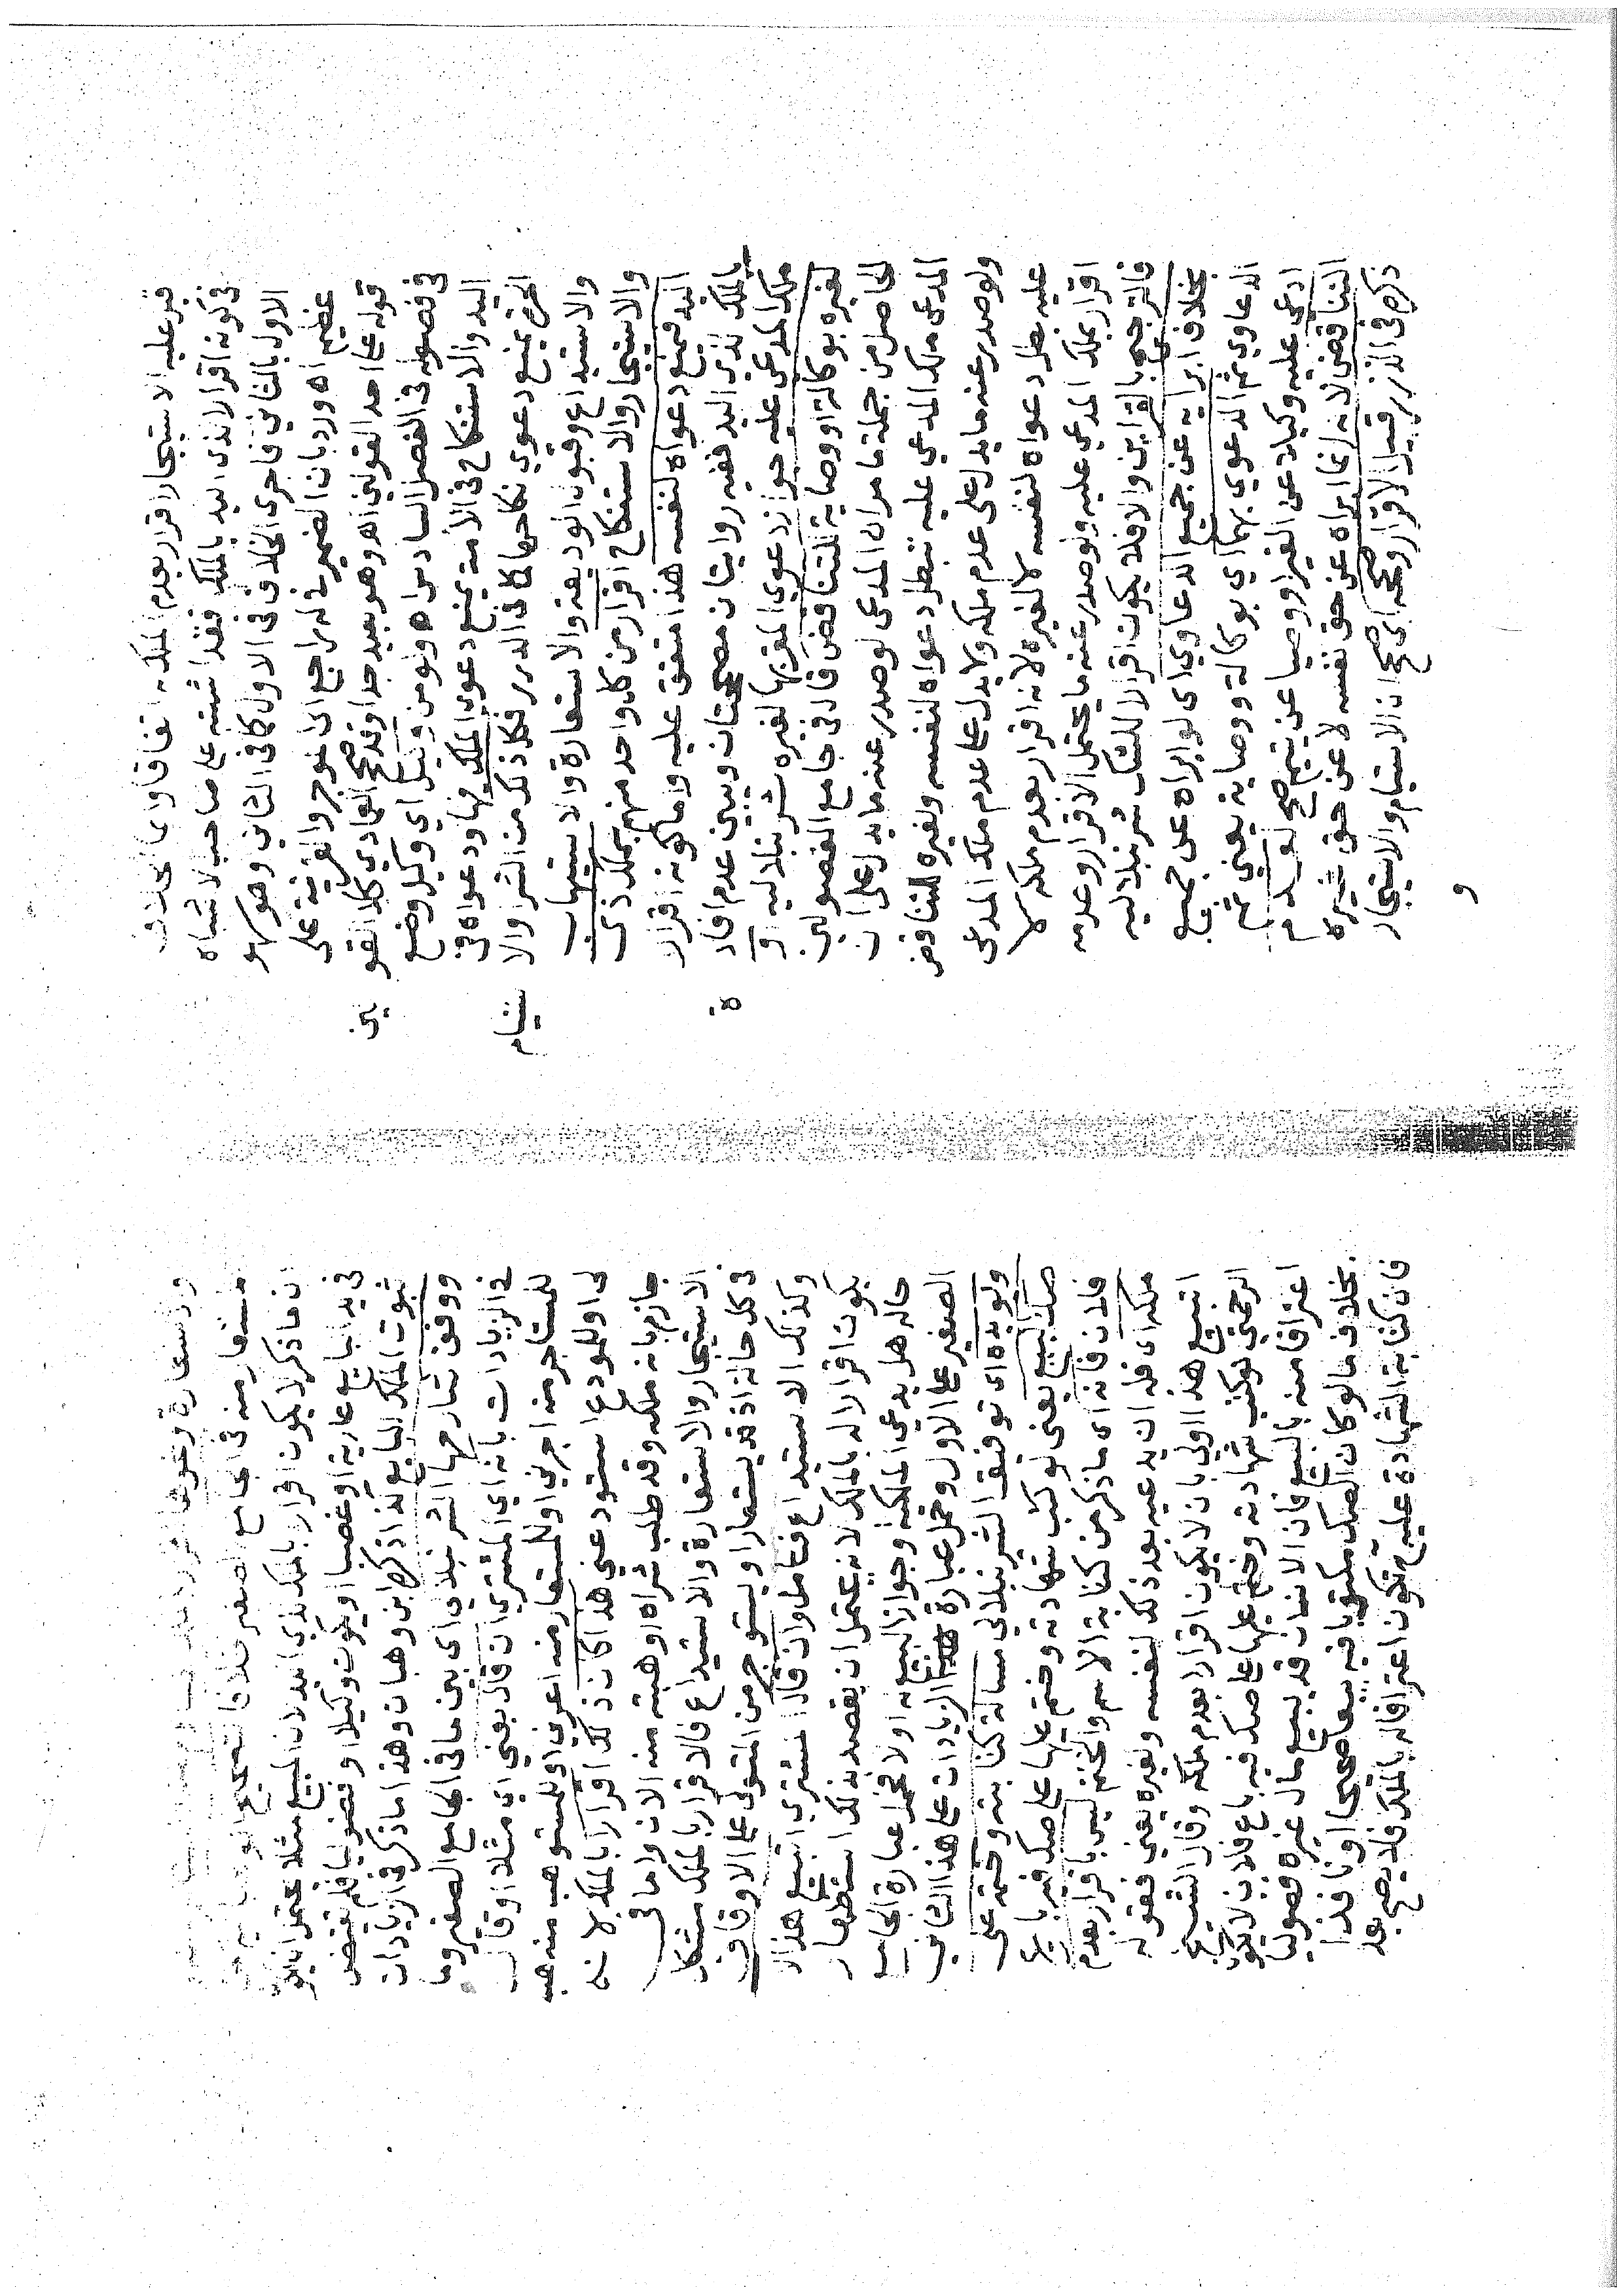 عليه الاستيجار اقرار بعدم الملك له اتفاقا والخلاف
في كونه اقرارا لذى اليد بالملك فقد اشتبه على صاحب الاشباه
الاول بالثاني فاجرى الخلاف في الاول كما في الثاني وهو سهو
عظيم اه ورد بان الضمير في له راجع الى المؤجر والقرينة على
قوله على احد القولين اه وهو بعيد جدا وقد صحح العمادي كلا القولين
في فصوله في الفصل السادس اه ولو من وكيل اي وكيل وضع
اليد والاستنكاح في الأمة يمنع دعوى الملك فيها ودعواه في
الحرة يمنع دعوي نكاحها كما في الدرر فكلا ذكر من الشرا والاستيام
والاستيداع وقبول الوديعة والاستعارة والاستيهاب
والاستيجار والاستنكاح اقرار من كل واحد منهم بملك ذى
اليد فيمنع دعواه لنفسه هذا متفق عليه واما كونه اقرارا
بالملك لذى اليد ففيه روايتان مصححتان ويبني عدم افادة
ملك المدعي عليه جواز دعوي المقر بها لغيره شرنبلاليه و
لغيره بوكالة او وصاية للتناقض قال في جامع الفصولين
الحاصل من جملة ما مر ان المدعى لو صدر عنه ما يدل على ان
المدعى ملك المدعي عليه تبطل دعواه لنفسه ولغيره للتناقض
ولو صدر عنه ما يدل على عدم ملكه ولا يدل على عدم ملك المدعى
عليه بطل دعواه لنفسه لا لغيره لانه اقرار بعدم ملكه لا
اقرار بملك المدعي عليه ولو صدر عنه ما يحتمل الاقرار وعدمه
فالترجيح بالقراين والا فلا يكون اقرارا للشك شرنبلاليه
بخلاف ابرايه عن جميع الدعاوي اى لو ابراه عن جميع
الدعاوي ثم الدعوي بهما اي بوكالة ووصاية يعني ثم
ادعى عليه وكيلا عن الغير او وصيا عن يتيم صح لعدم
التناقض لانه انما ابراه عن حق نفسه لا عن حق غيره
ذكره في الدرر قبيل الاقرار وصححه اى صحح ان الاستيام والاستيجار
و
والاستعارة ونحوها
مستعار منه في الجامع الصغير خلافا لتصحيح
ان ما ذكر لا يكون اقرار بالملك لذى اليد لان المبيع مثلا يحتمل ان يكون
في يد البايع عارية او غصبا او يكون وكيلا او فضوليا فلم يقتض
ثبوت الملك للبايع لذا ذكره ابن وهبان وهذا ما ذكر في الزيادات
ووفق شارحها الشرنبلالي اى بين ما في الجامع الصغير وما
في الزيادات بانه اي المشتري ان قال بعني اي مثلا او قال
للمستاجر منه اجرني او للمستعار منه اعرني او للمستوهب منه هب
لى او للمودع استودعني هذا كان ذلك اقرارا بالملك لانه
جازم بانه ملكه وقد طلب شراه او هبته منه الان واما في
الاستيجار والاستعارة والاستيداع فالاقرار بالملك مشكل
في كل حالة اذ قد يستعار او يستوجر من المتولى على الاوقاف
وكذلك الاستيداع فتامل وان قال المشتري اتبيع هذا لا
يكون اقرارا له بالملك لانه يحتمل ان يقصد بذلك استظهار
حاله هل يدعي الملكية وجواز البيع له او لا فيحمل عبارة الجامع
الصغير على الاول وتحمل عبارة الزيادات على هذا الثاني
ويؤيده اى توفيق الشرنبلالي مسالة كتابته وختمه على
صك البيع يعني لو كتب شهادته وختم عليها على صك فيه باع
فلان فانه اى ما ذكر من كتابة الاسم والختم ليس باقرار بعدم
ملكه اى فله ان يدعيه بعد ذلك لنفسه ولغيره يعني فقوله
اتبيع هذا اولى بان لا يكون اقرارا بعدم ملكه وقال الشيخ
الرحمتي لو كتب شهادته وختم عليها على صك فيه باع فلان لا يكون
اعترافا منه بالبيع فان الانسان قد يبيع مال غيره فضوليا
بخلاف ما لو كان الصك مكتوبا فيه بيعا صحيحا او نافذا
فان كتابة الشهادة عليه تكون اعترافا له بالملك فلا يصح بعد